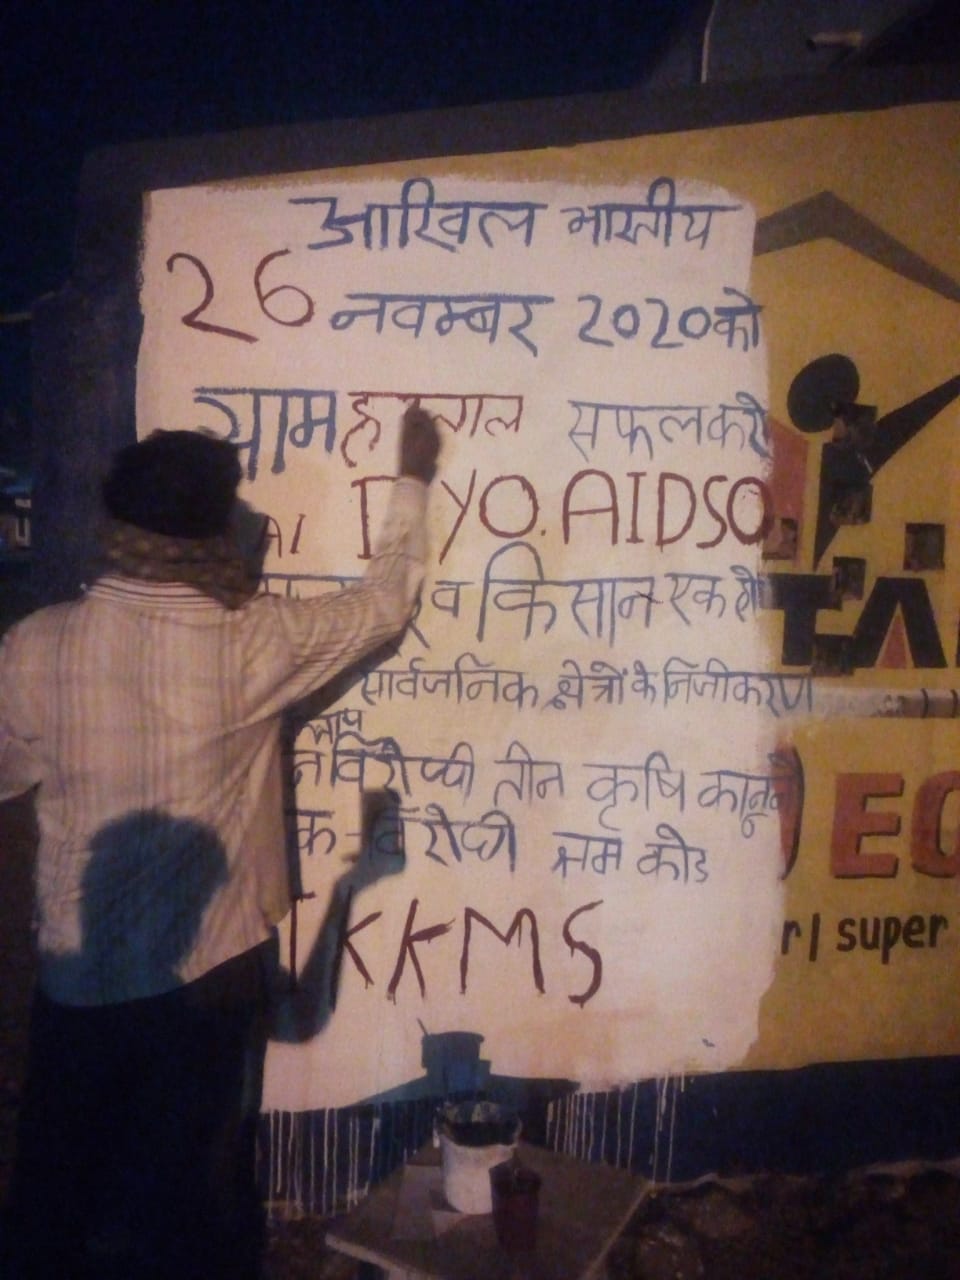 आखिल भारतीय
26 नवम्बर 2020 को
ग्राम सफल करे
AI YO. AIDSO
व किसान एक हो
सार्वजनिक क्षेत्रों के निजीकरण
विरोध्यी तीन कृषि कानून
क विरोधी श्रम कोड
KKMS
TA
EC
r| super